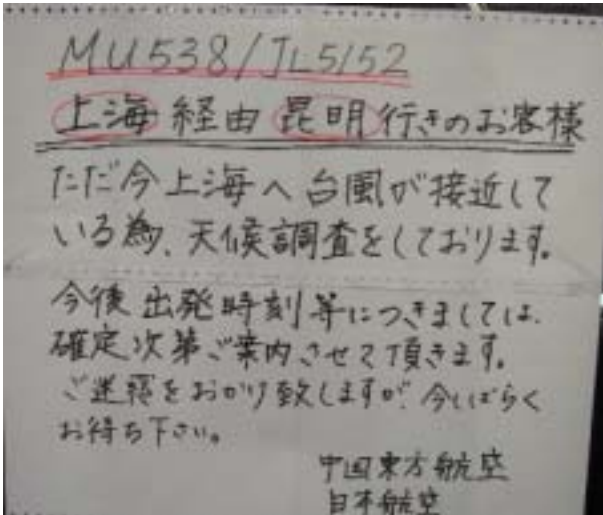 MU538/JL5152
上海経由昆明行きのお客様
ただ今上海へ台風が接近して
いる為、天候調査をしております。
今後出発時刻等につきましては、
確定次第ご案内させて頂きます。
ご迷惑をおかけ致しますが、今しばらく
お待ち下さい。
中国東方航空
日本航空